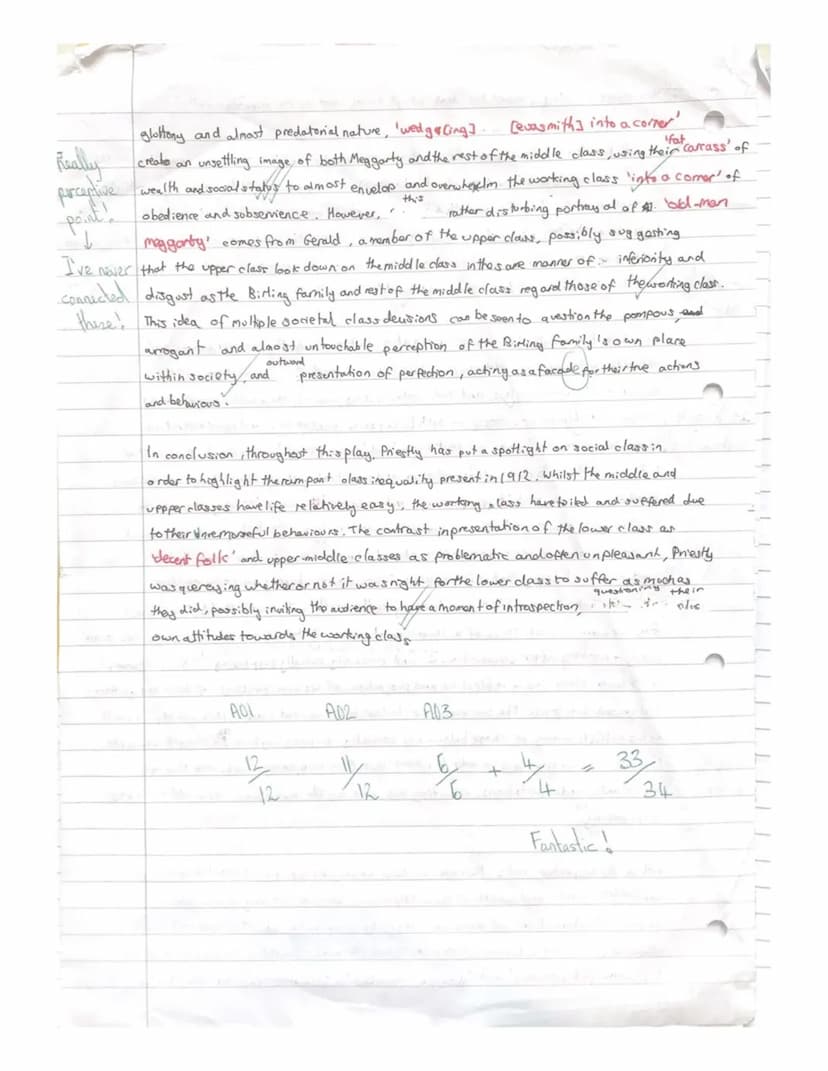 gluttony and almost predatorial nature, 'wedg[ing]. [evasmith] into a corner'
create an unsettling image of both Meggarty and the rest of the middle class, using their 'fat carcass' of
wealth and social status to almost envelop and overwhelm the working class 'into a corner' of
obedience and subservience. However, this rather disturbing portrayal of 'old-man
meggarty' comes from Gerald, a member of the upper class, possibly suggesting
that the upper class look down on the middle class in the same manner of inferiority and
disgust as the Birling family and rest of the middle class regard those of the working class.
This idea of multiple societal class decisions can be seen to question the pompous, and
arrogant and almost untouchable perception of the Birling family's own place
within society, and outward presentation of perfection, acting as a facade for their true actions
and behaviours.
Really
perceptive
point!
↓
I've never
connected
these!
In conclusion, throughout this play, Priestly has put a spotlight on social class in
order to highlight the rampant class inequality present in 1912. Whilst the middle and
uppper classes have life relatively easy, the working class have toiled and suffered due
to their unremorseful behaviours. The contrast in presentation of the lower class as
'decent folk' and upper-middle classes as problematic and often unpleasant, Priestly
was querying whether or not it was right for the lower class to suffer as much as
they did, possibly inviting the audience to have a moment of introspection, questioning their
own attitudes towards the working class.
A01 A02 A03
12/12 11/12 6/6 + 4/4 = 33/34
Fantastic!